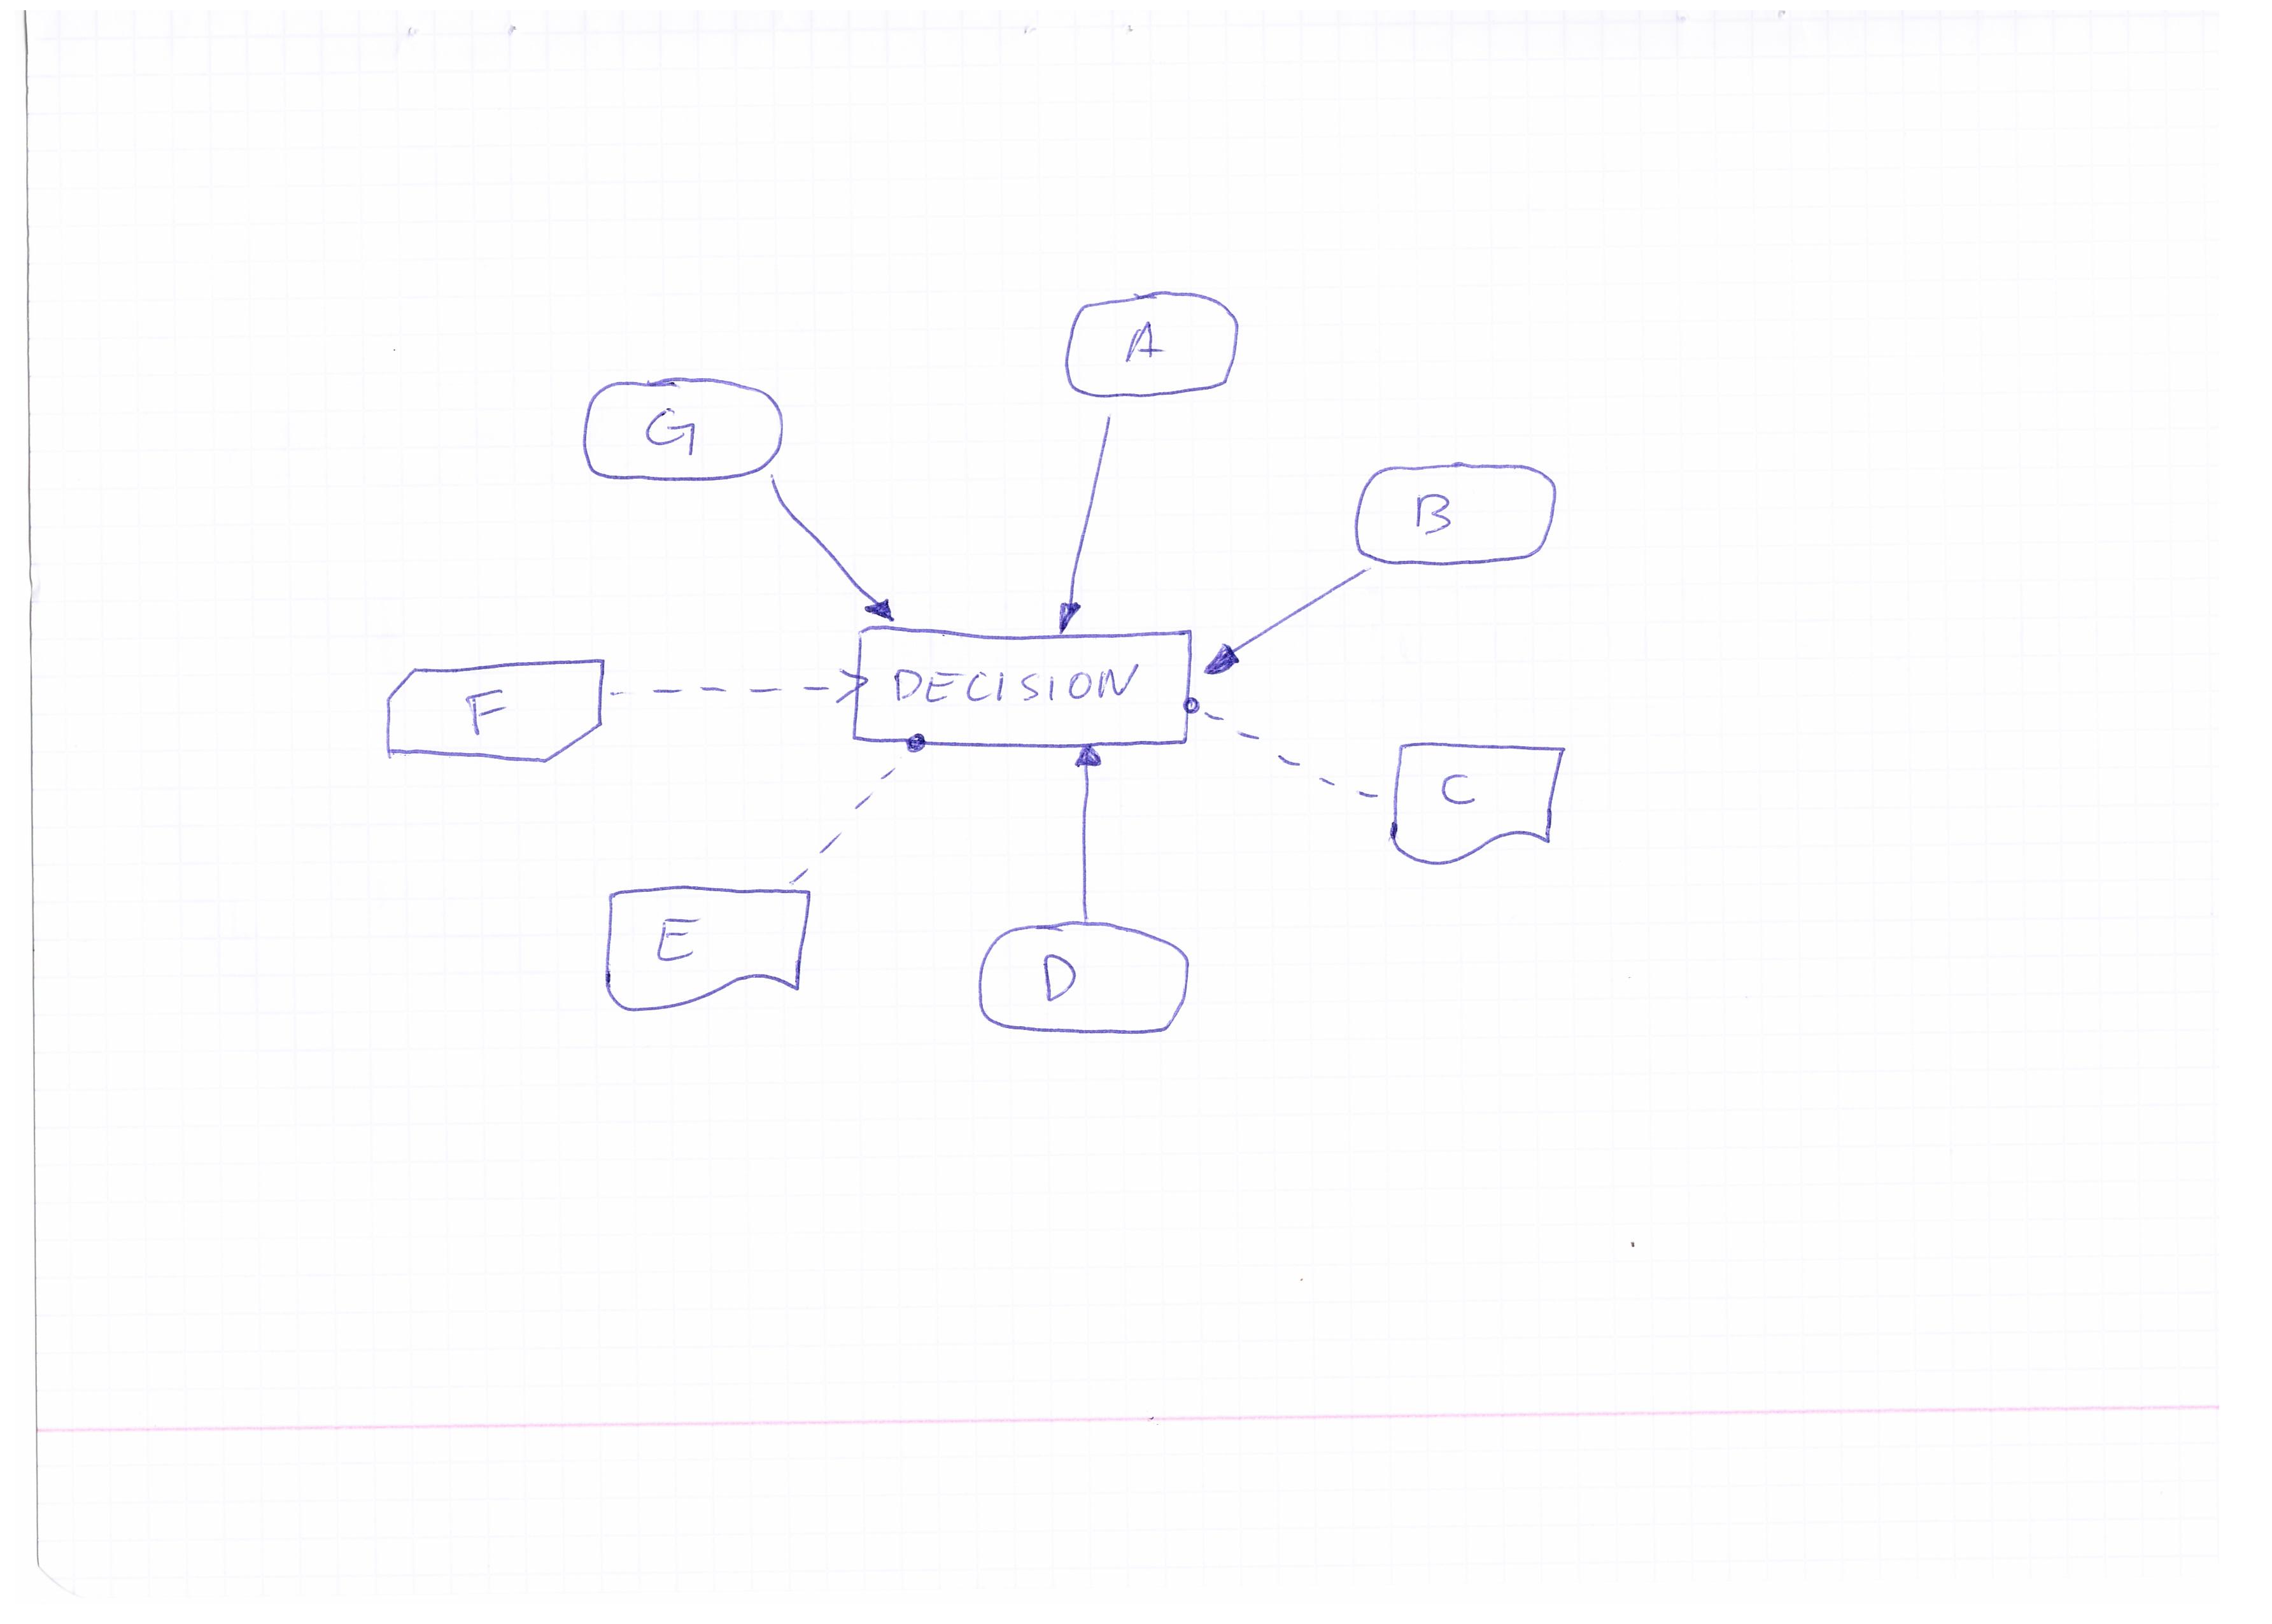 A
G
B
DECISION
F
C
E
D